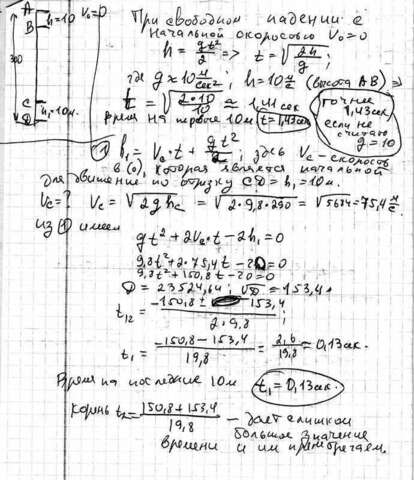 A
B
h=10
V₀=0
300
C
D
h₁=10м.
При свободном падении с
начальной скоростью V₀=0
h = gt²/2 => t = √(2h/g);
где g≈10 м/сек²; h=10 (высота AB) =>
t = √(2·10/10) ≈ 1,41 сек
время на первые 10м t=1,43сек
точнее
1,43сек,
если не
считать
g=10
① h₁ = Vc·t + gt²/2; здесь Vc – скорость
в (·)C, которая является начальной
для движения по отрезку CD = h₁ = 10м.
Vc=? Vc = √(2ghc) = √(2·9,8·290) = √5684 = 75,4 м/с
из ① имеем
gt² + 2Vc·t - 2h₁ = 0
9,8t² + 2·75,4 t - 20 = 0
9,8t² + 150,8 t - 20 = 0
D = 23524,64; √D = 153,4
t₁₂ = (-150,8 ± 153,4)/(2·9,8);
t₁ = (-150,8 - 153,4)/19,8 = 2,6/19,8 = 0,13сек.
Время на последние 10м t₁=0,13сек.
Корень t₂ = (150,8 + 153,4)/19,8 – дает слишком
большое значение
времени и им пренебрегаем.